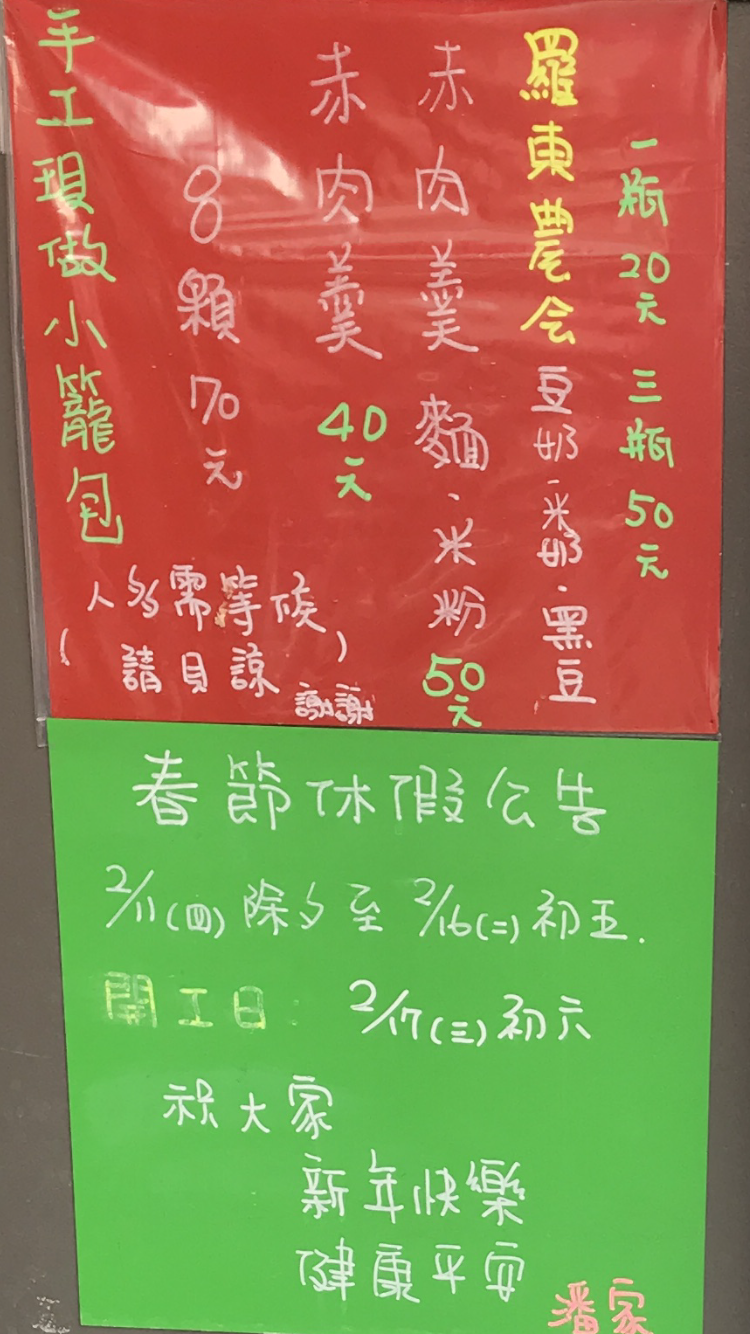 一瓶20元 三瓶50元
羅東農会 豆奶.米奶.黑豆
赤肉羹麵.米粉50元
赤肉羹 40元
8顆70元
手工現做小籠包
(人多需等候
請見諒) 謝謝
春節休假公告
2/11(四)除夕至2/16(二)初五.
開工日: 2/17(三)初六
祝大家
新年快樂
健康平安
潘家